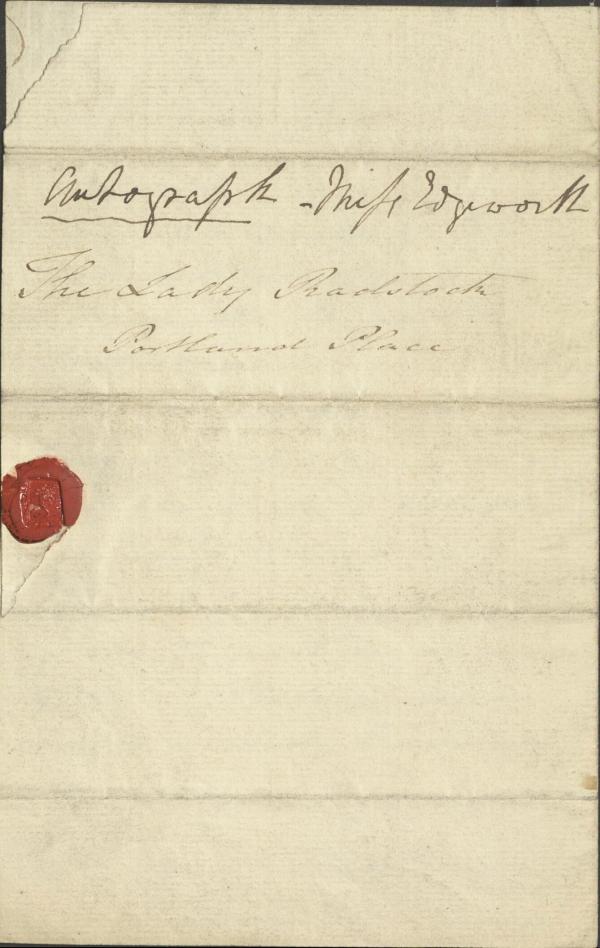 Autograph - Miss Edgeworth
The Lady Radstock
Portland Place